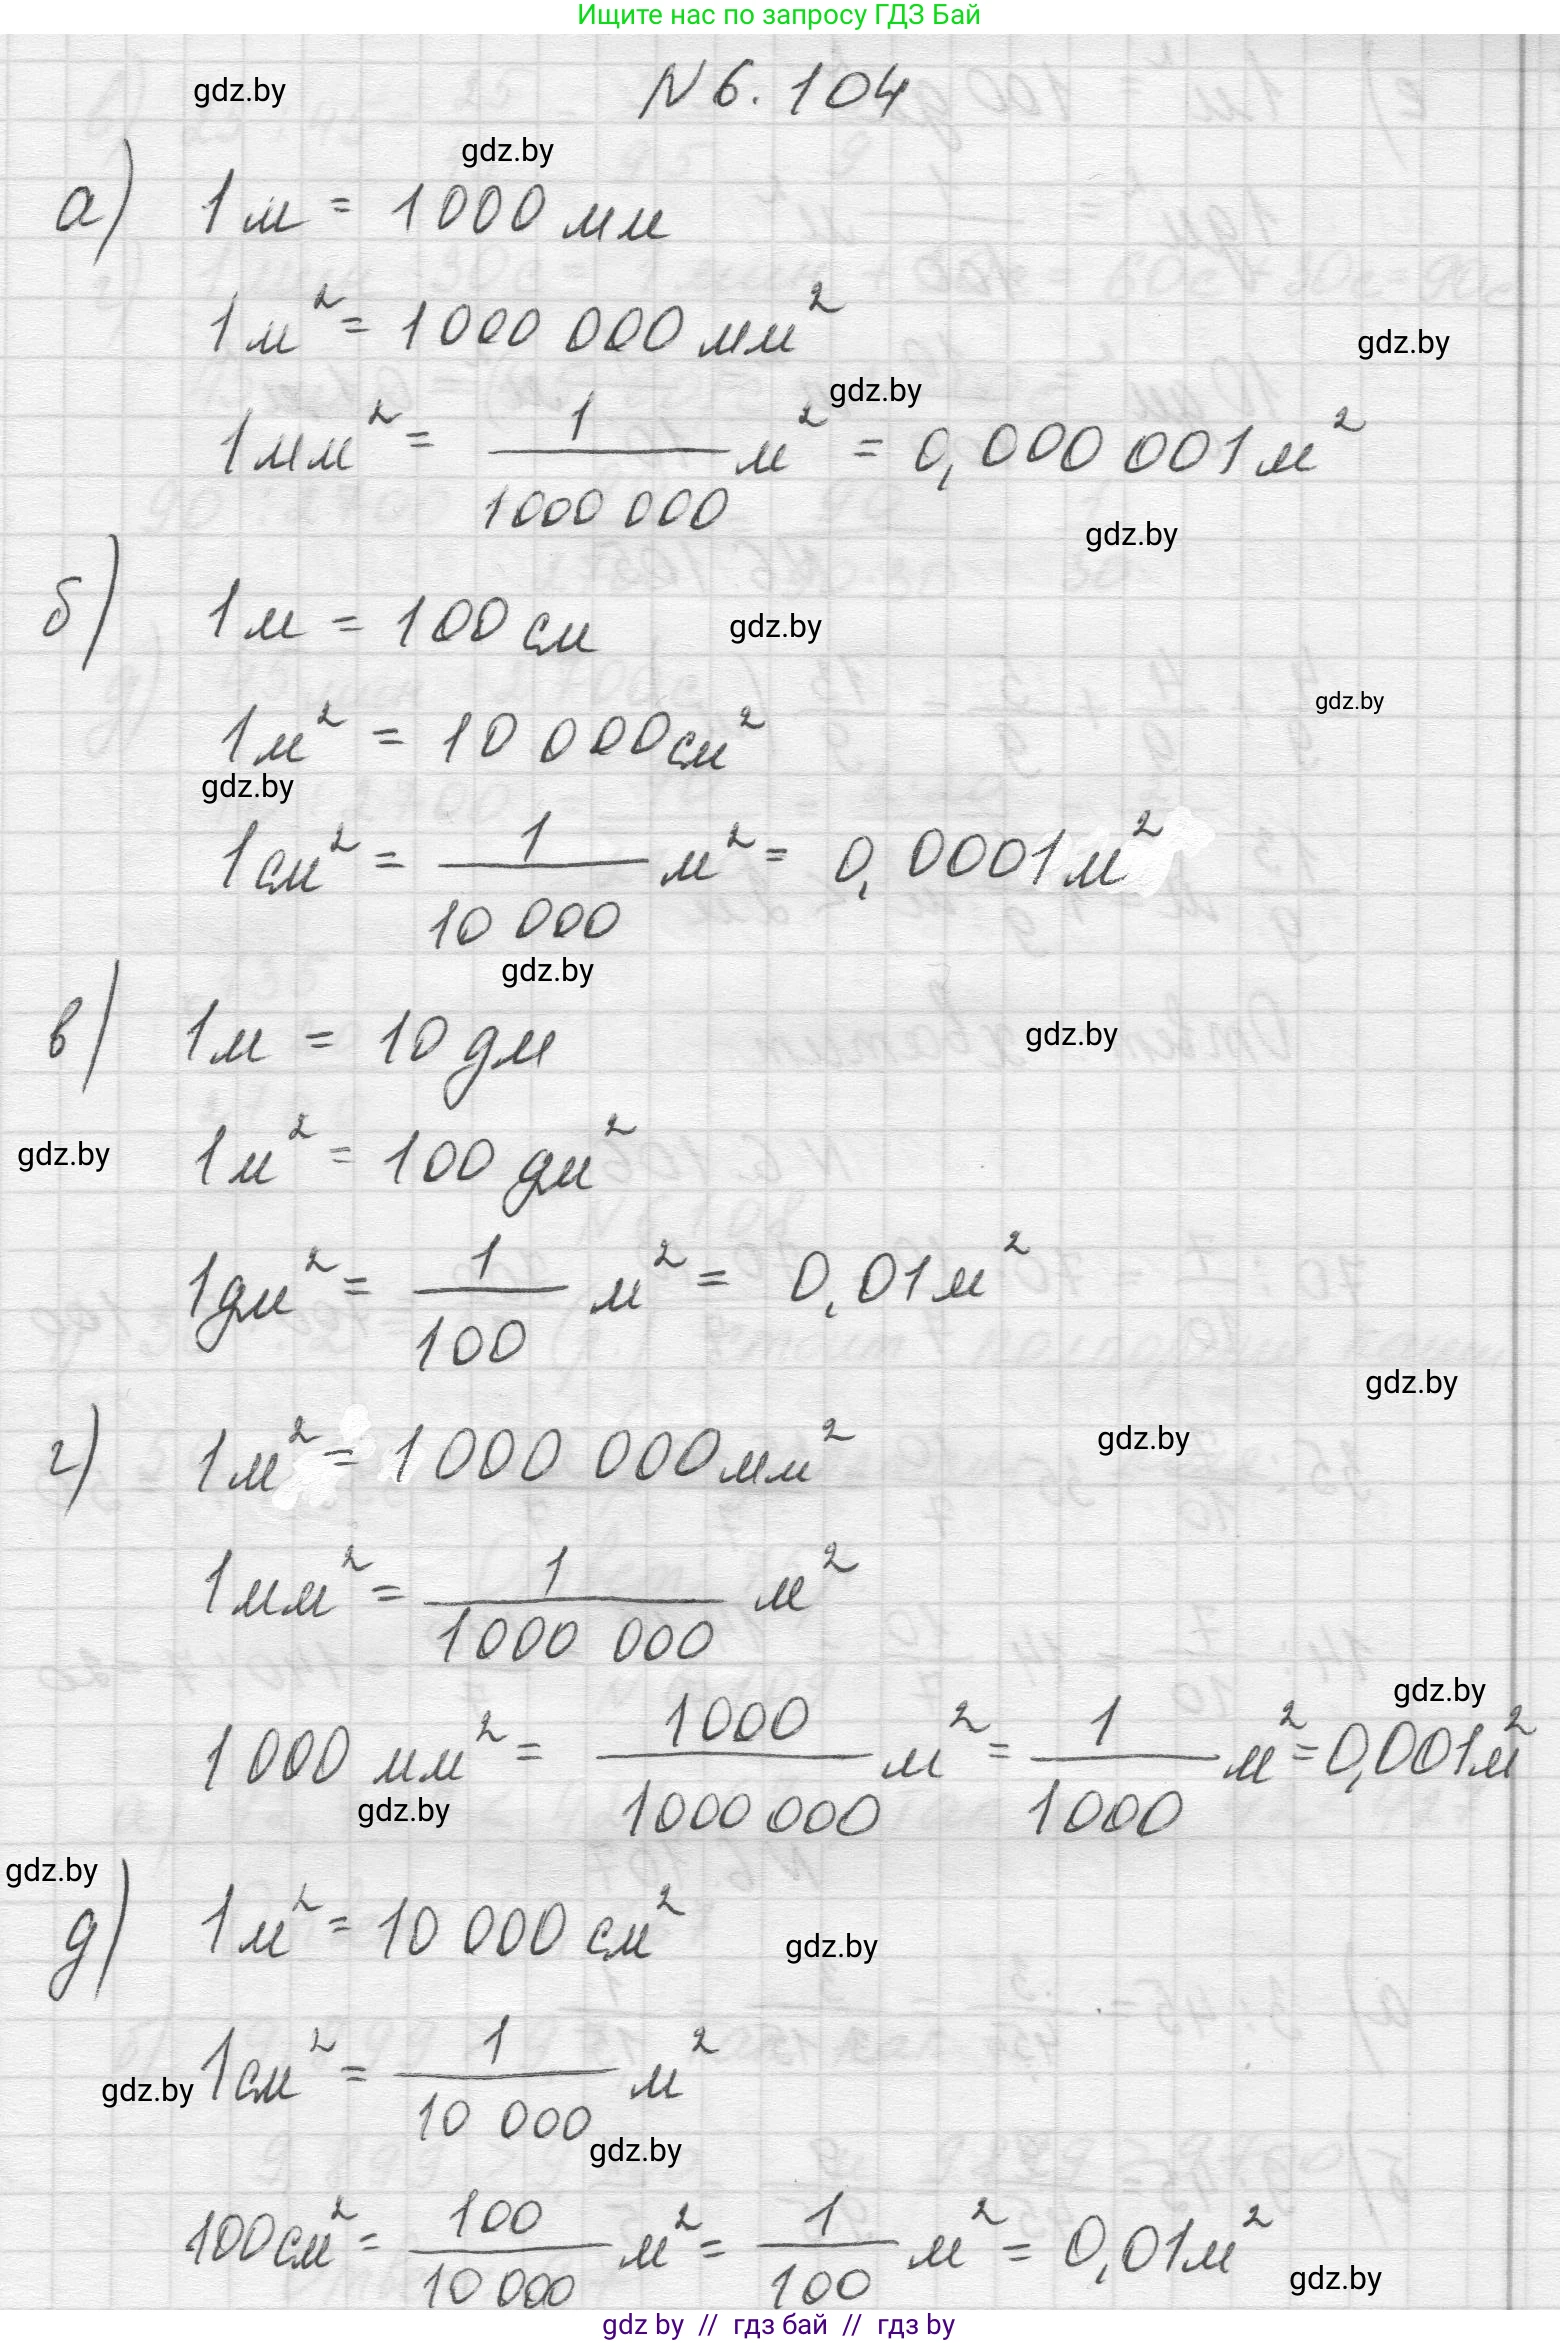 Ищите нас по запросу ГДЗ Бай
gdz.by
N 6. 104
gdz.by
а) 1 м = 1000 мм
1 м² = 1000 000 мм²
gdz.by
gdz.by
1 мм² = 1/1000 000 м² = 0,000 001 м²
gdz.by
б) 1 м = 100 см
gdz.by
gdz.by
1 м² = 10 000 см²
gdz.by
1 см² = 1/10 000 м² = 0,0001 м²
gdz.by
в) 1 м = 10 дм
gdz.by
1 м² = 100 дм²
gdz.by
1 дм² = 1/100 м² = 0,01 м²
gdz.by
г) 1 м² = 1000 000 мм²
gdz.by
1 мм² = 1/1000 000 м²
gdz.by
1000 мм² = 1000/1000 000 м² = 1/1000 м² = 0,001 м²
gdz.by
gdz.by
д) 1 м² = 10 000 см²
gdz.by
1 см² = 1/10 000 м²
gdz.by
gdz.by
100 см² = 100/10 000 м² = 1/100 м² = 0,01 м²
gdz.by
gdz by // гдз бай // гдз by